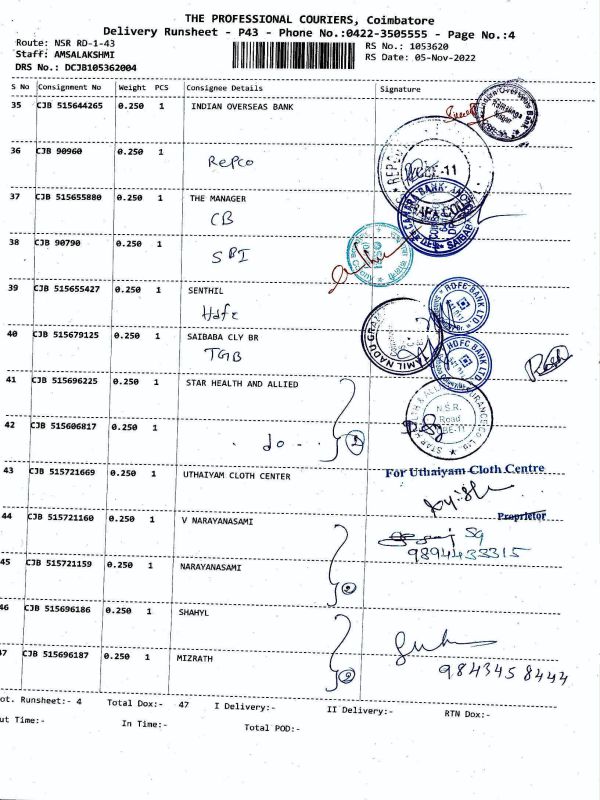 THE PROFESSIONAL COURIERS, Coimbatore
Delivery Runsheet - P43 - Phone No.:0422-3505555 - Page No.:4
Route: NSR RD-1-43 RS No.: 1053620
Staff: AMSALAKSHMI RS Date: 05-Nov-2022
DRS No.: DCJB105362004
S No Consignment No Weight PCS Consignee Details Signature
35 CJB 515644265 0.250 1 INDIAN OVERSEAS BANK
36 CJB 90960 0.250 1
Repco
37 CJB 515655880 0.250 1 THE MANAGER
CB
38 CJB 90790 0.250 1
SBI
39 CJB 515655427 0.250 1 SENTHIL
Hdfc
40 CJB 515679125 0.250 1 SAIBABA CLY BR
TGB
41 CJB 515696225 0.250 1 STAR HEALTH AND ALLIED
N.S.R.
Road
42 CJB 515606817 0.250 1
do
43 CJB 515721669 0.250 1 UTHAIYAM CLOTH CENTER
For Uthaiyam Cloth Centre
Proprietor
44 CJB 515721160 0.250 1 V NARAYANASAMI
9894433315
45 CJB 515721159 0.250 1 NARAYANASAMI
46 CJB 515696186 0.250 1 SHAHYL
47 CJB 515696187 0.250 1 MIZRATH
9843458444
ot. Runsheet:- 4 Total Dox:- 47 I Delivery:- II Delivery:- RTN Dox:-
ut Time:- In Time:- Total POD:-